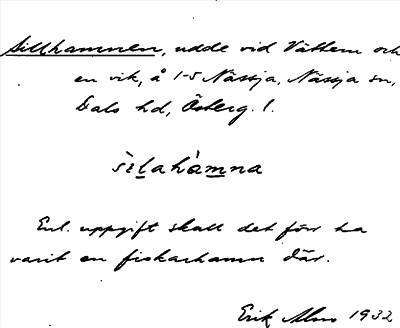 Sillhamnen, udde vid Vättern och
en vik, å 1-5 Nässja, Nässja sn,
Dals hd, Österg. l.
sìlahàmna
Enl. uppgift skall det förr ha
varit en fiskarhamn där.
Erik Alm 1932